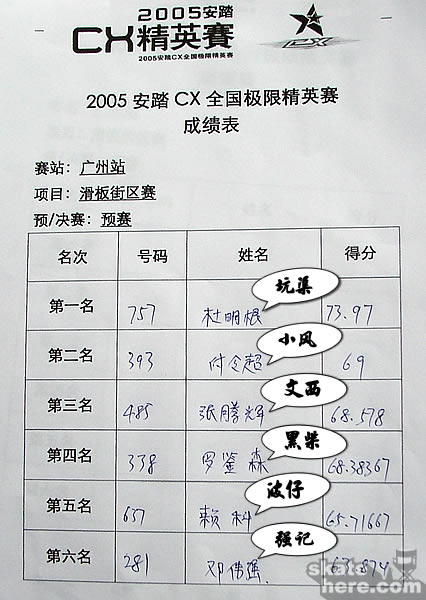 2005安踏
CX精英賽
2005安踏CX全国极限精英赛
CX
2005 安踏 CX 全国极限精英赛
成绩表
赛站：广州站
项目：滑板街区赛
预/决赛：预赛
名次 号码 姓名 得分
坑渠
第一名 757 杜明根 73.97
小风
第二名 393 付令超 69
文西
第三名 485 张腾辉 68.578
黑柴
第四名 338 罗鉴森 68.38367
波仔
第五名 637 赖科 65.71667
强记
第六名 281 邓伟强 63.874
skate
here.com